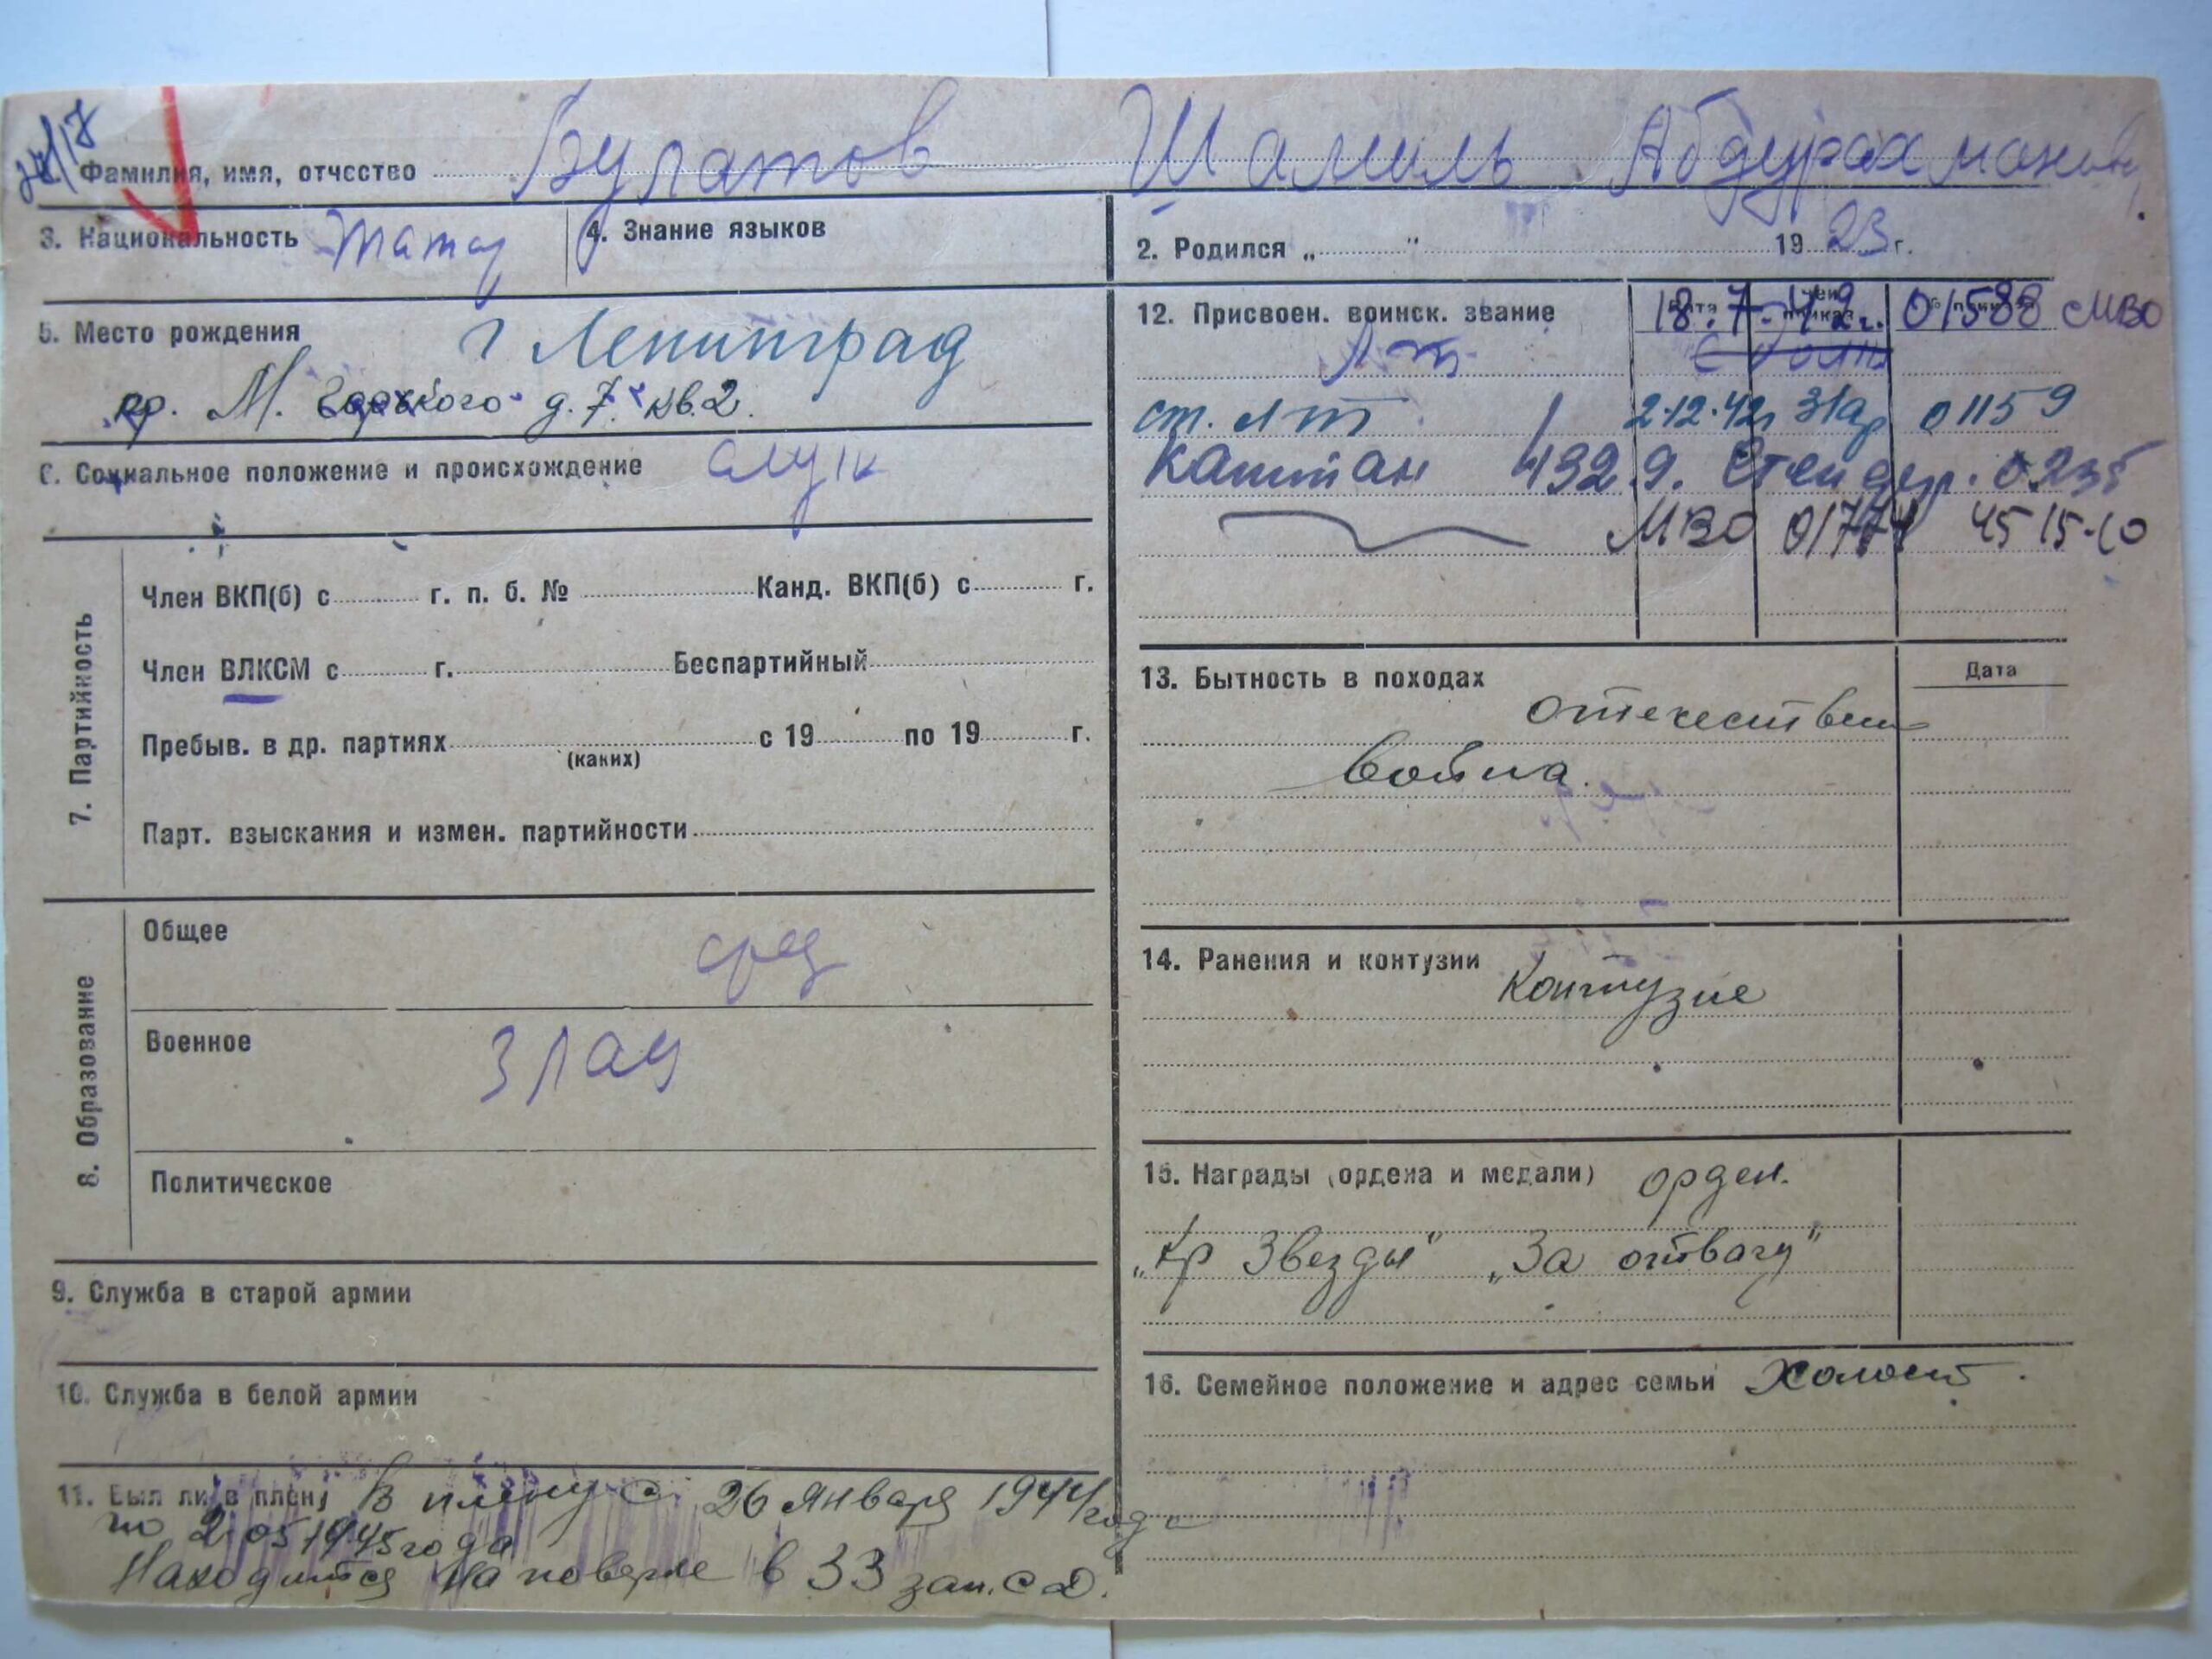 Фамилия, имя, отчество Булатов Шамиль Абдурахманович
3. Национальность татар
4. Знание языков
2. Родился „ “ 1923 г.
5. Место рождения г Ленинград
пр. М. Горького д. 7. кв. 2.
6. Социальное положение и происхождение служ
7. Партийность
Член ВКП(б) с г. п. б. № Канд. ВКП(б) с г.
Член ВЛКСМ с г. Беспартийный
Пребыв. в др. партиях с 19 по 19 г.
(каких)
Парт. взыскания и измен. партийности
8. Образование
Общее сред
Военное
Политическое
9. Служба в старой армии
10. Служба в белой армии
11. Был ли в плену В плену с 26 января 1944 года
по 2 05 1945 года
Находится на поверке в 33 зап. с д.
12. Присвоен. воинск. звание 18.7.42г. 01588 МВО
Лт
ст. лт 2.12.42г 31ар 01159
Капитан Степ
МВО 45 15-10
13. Бытность в походах Дата
отечествен
война.
14. Ранения и контузии
контузие
15. Награды (ордена и медали) орден.
„Кр Звезды" „За отвагу"
16. Семейное положение и адрес семьи Холост.